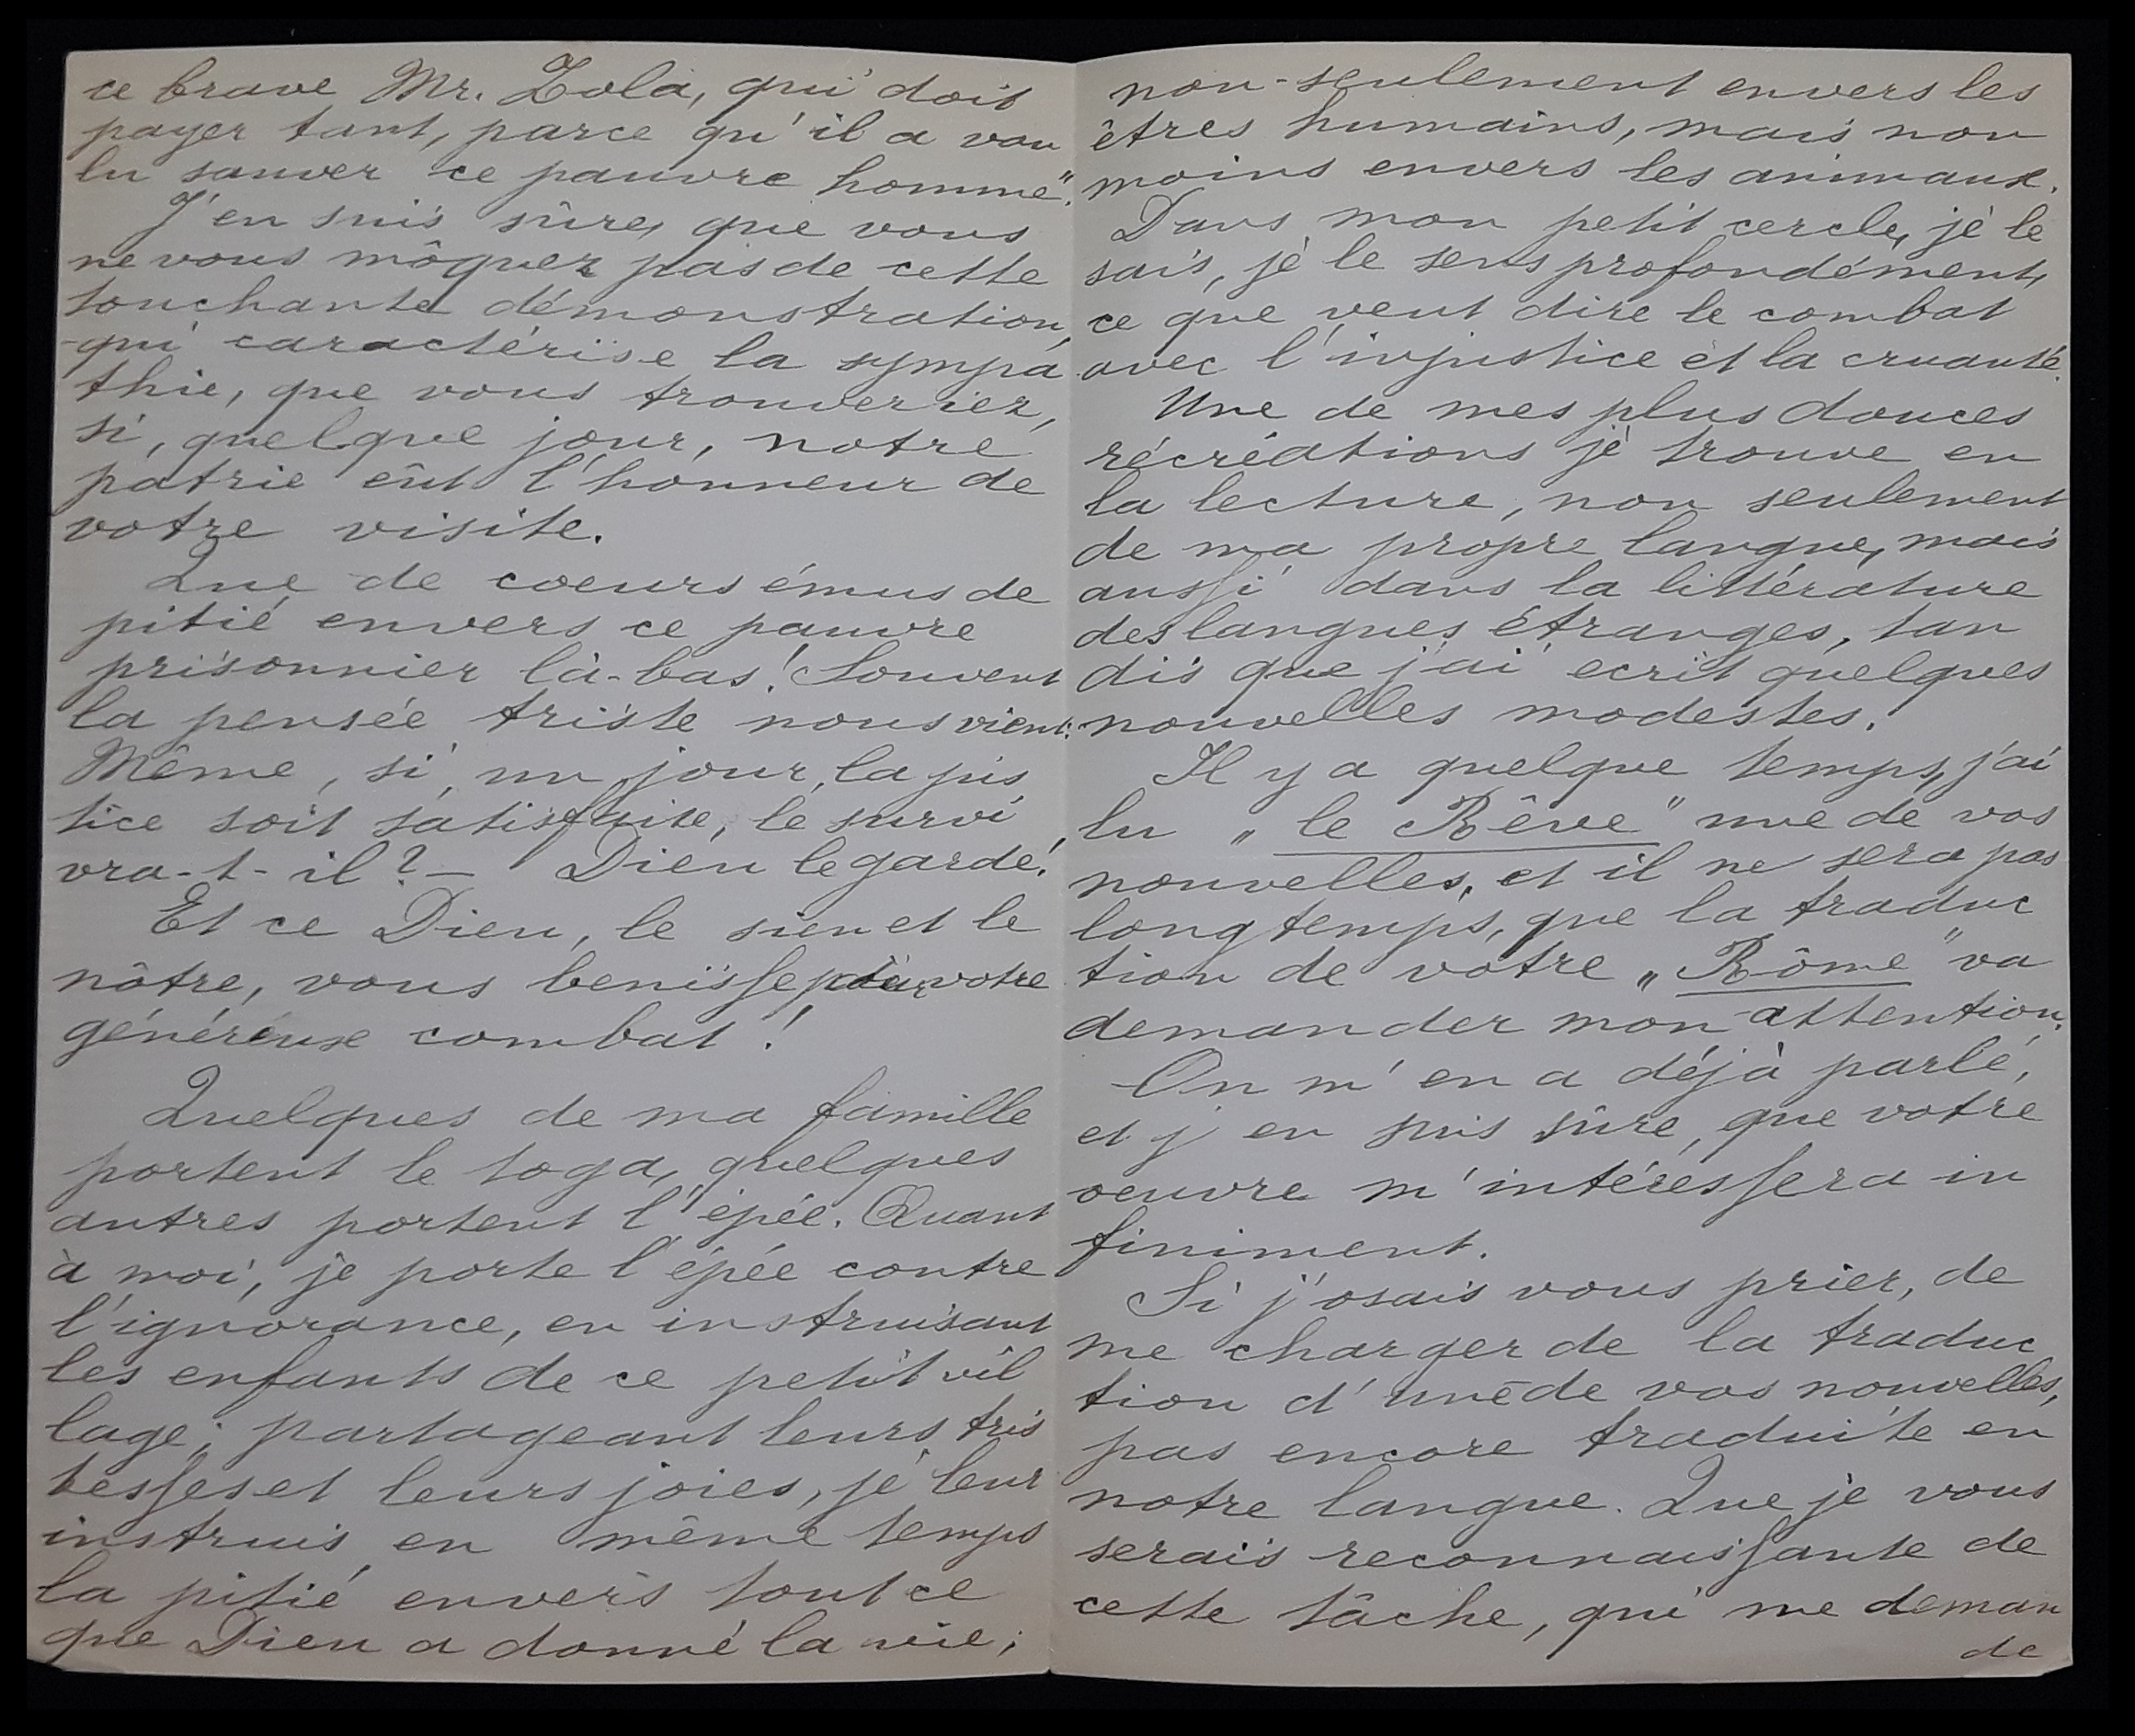 ce brave Mr. Zola, qui doit
payer tant, parce qu'il a vou
lu sauver ce pauvre homme".
J'en suis sûre, que vous
ne vous môquez pas de cette
touchante démonstration,
qui caractérise la sympa
thie, que vous trouveriez,
si, quelque jour, notre
patrie eût l'honneur de
votre visite.
Que de coeurs émus de
pitié envers ce pauvre
prisonnier là-bas! Souvent
la pensée triste nous vient:
Même, si, un jour, la jus
tice soit satisfaite, le survi
vra-t-il? — Dieu le garde!
Et ce Dieu, le sien et le
nôtre, vous benisse pour votre
généreux combat!
Quelques de ma famille
portent le toga, quelques
autres portent l'épée. Quant
à moi, je porte l'épée contre
l'ignorance, en instruisant
les enfants de ce petit vil
lage; partageant leurs tris
tesses et leurs joies, je leur
instruis en même temps
la pitié envers tout ce
que Dieu a donné la vie;
non-seulement envers les
êtres humains, mais non
moins envers les animaux.
Dans mon petit cercle, je le
sais, je le sens profondément,
ce que veut dire le combat
avec l'injustice et la cruauté.
Une de mes plus douces
récréations je trouve en
la lecture, non seulement
de ma propre langue, mais
aussi dans la littérature
des langues étranges, tan
dis que j'ai ecrit quelques
nouvelles modestes.
Il y a quelque temps, j'ai
lu „le Rêve" une de vos
nouvelles, et il ne sera pas
longtemps, que la traduc
tion de votre „Rôme" va
demander mon attention.
On m'en a déjà parlé,
et j'en suis sûre, que votre
oeuvre m'intéressera in
finiment.
Si j'osais vous prier, de
me charger de la traduc
tion d'une de vos nouvelles,
pas encore traduite en
notre langue. Que je vous
serais reconnaissante de
cette tâche, qui me deman
de